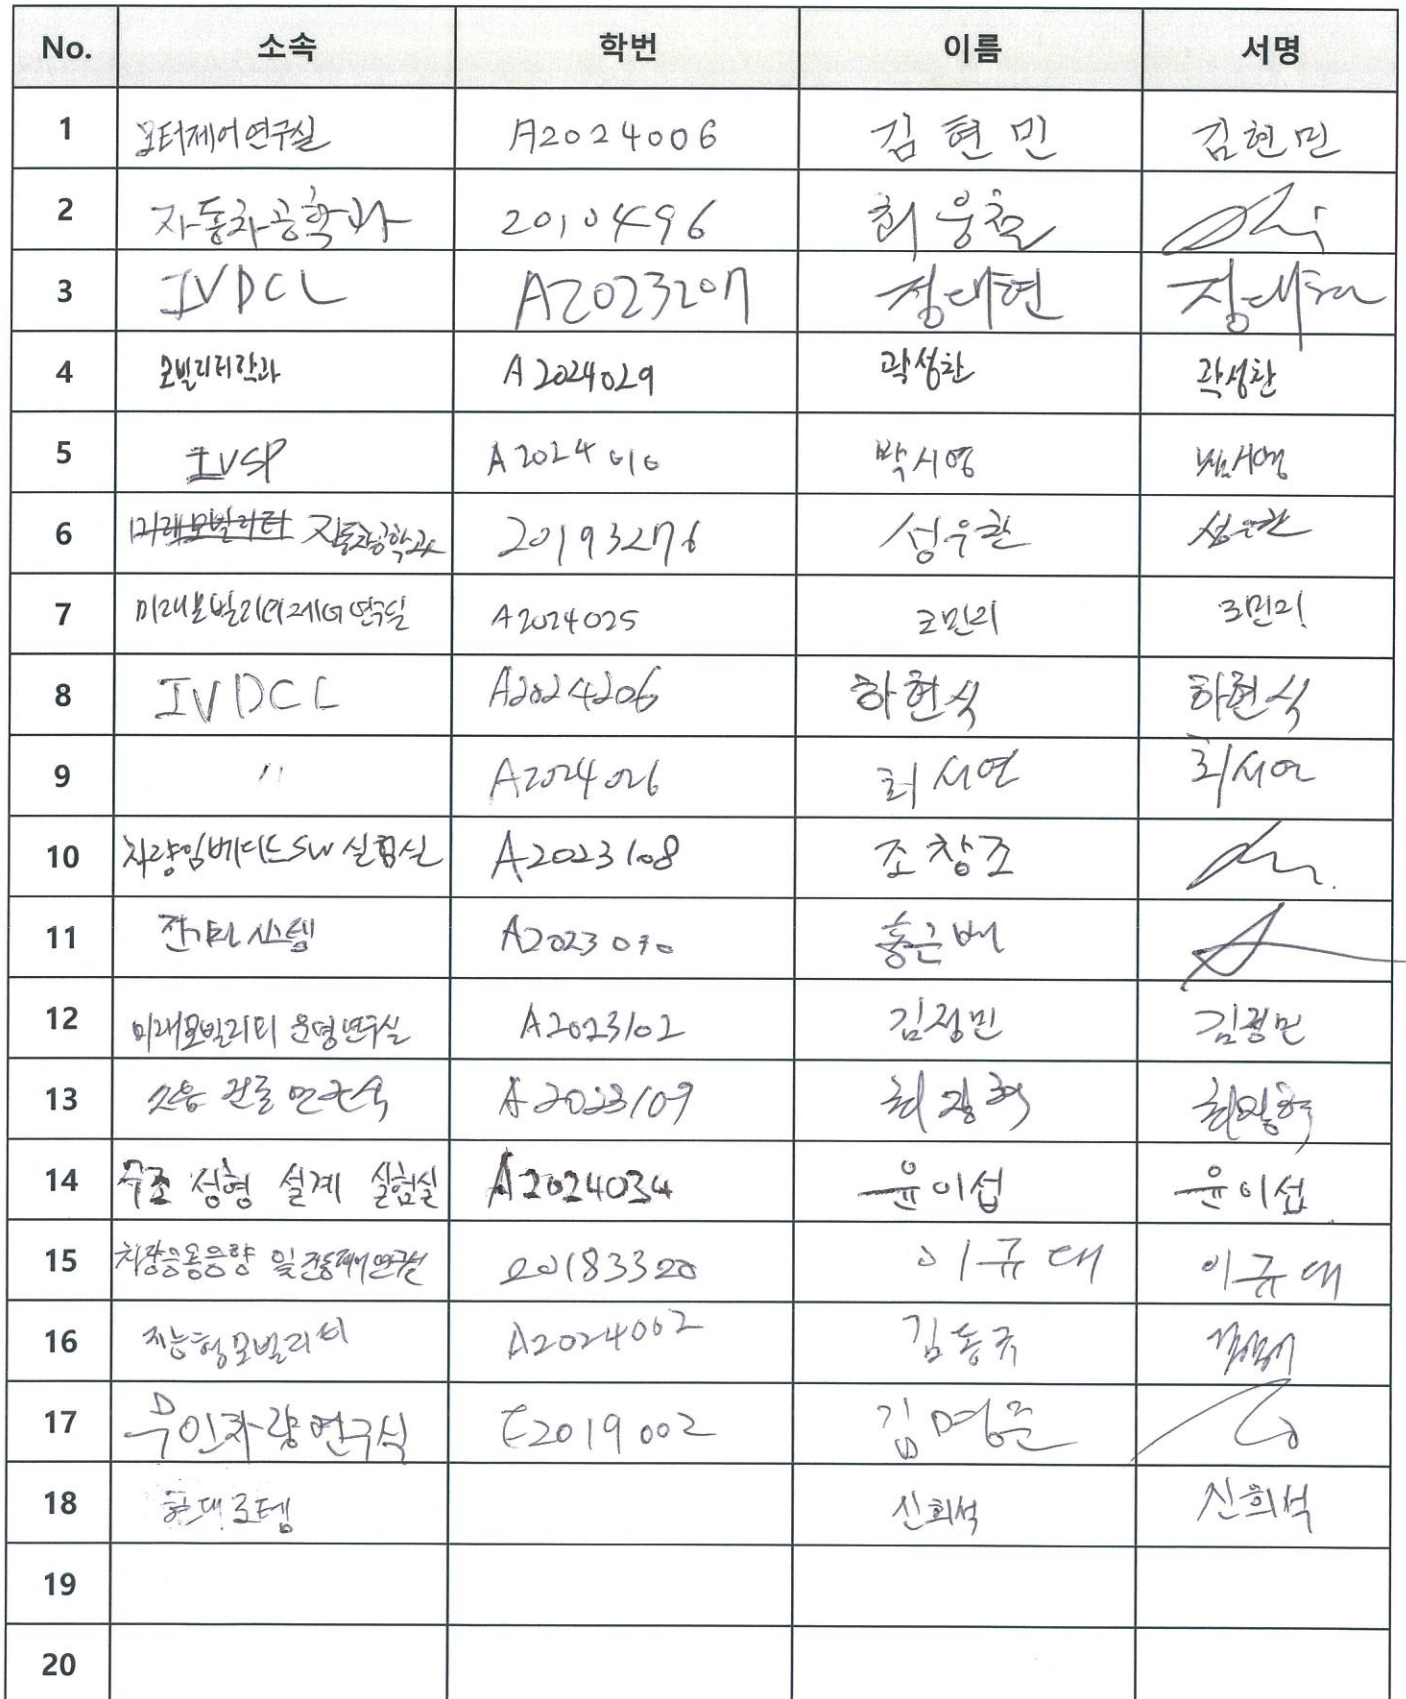 No. 소속 학번 이름 서명
1 모터제어연구실 A2024006 김현민 김현민
2 자동차공학과 20104496 최웅철
3 IVDCL A2023207 정대현 정대현
4 모빌리티학과 A2024029 곽성찬 곽성찬
5 IVSP A2024010 박시영 박시영
6 미래모빌리티 자동차공학과 20193276 성우환 성우환
7 미래모빌리티제어연구실 A2024025 조민기 조민기
8 IVDCL A2024206 하현식 하현식
9 " A2024026 최서연 최서연
10 차량임베디드SW실험실 A2023108 조창조
11 시스템 A2023070 홍근배
12 미래모빌리티 운영연구실 A2023102 김정민 김정민
13 A2023109
14 구조 성형 설계 실험실 A2024034 윤이섭 윤이섭
15 차량응용음향 및 진동제어연구실 20183320 이규대 이규대
16 지능형모빌리티 A2024002 김동규
17 무인차량연구실 E2019002 김명준
18 현대로템 신희석 신희석
19
20